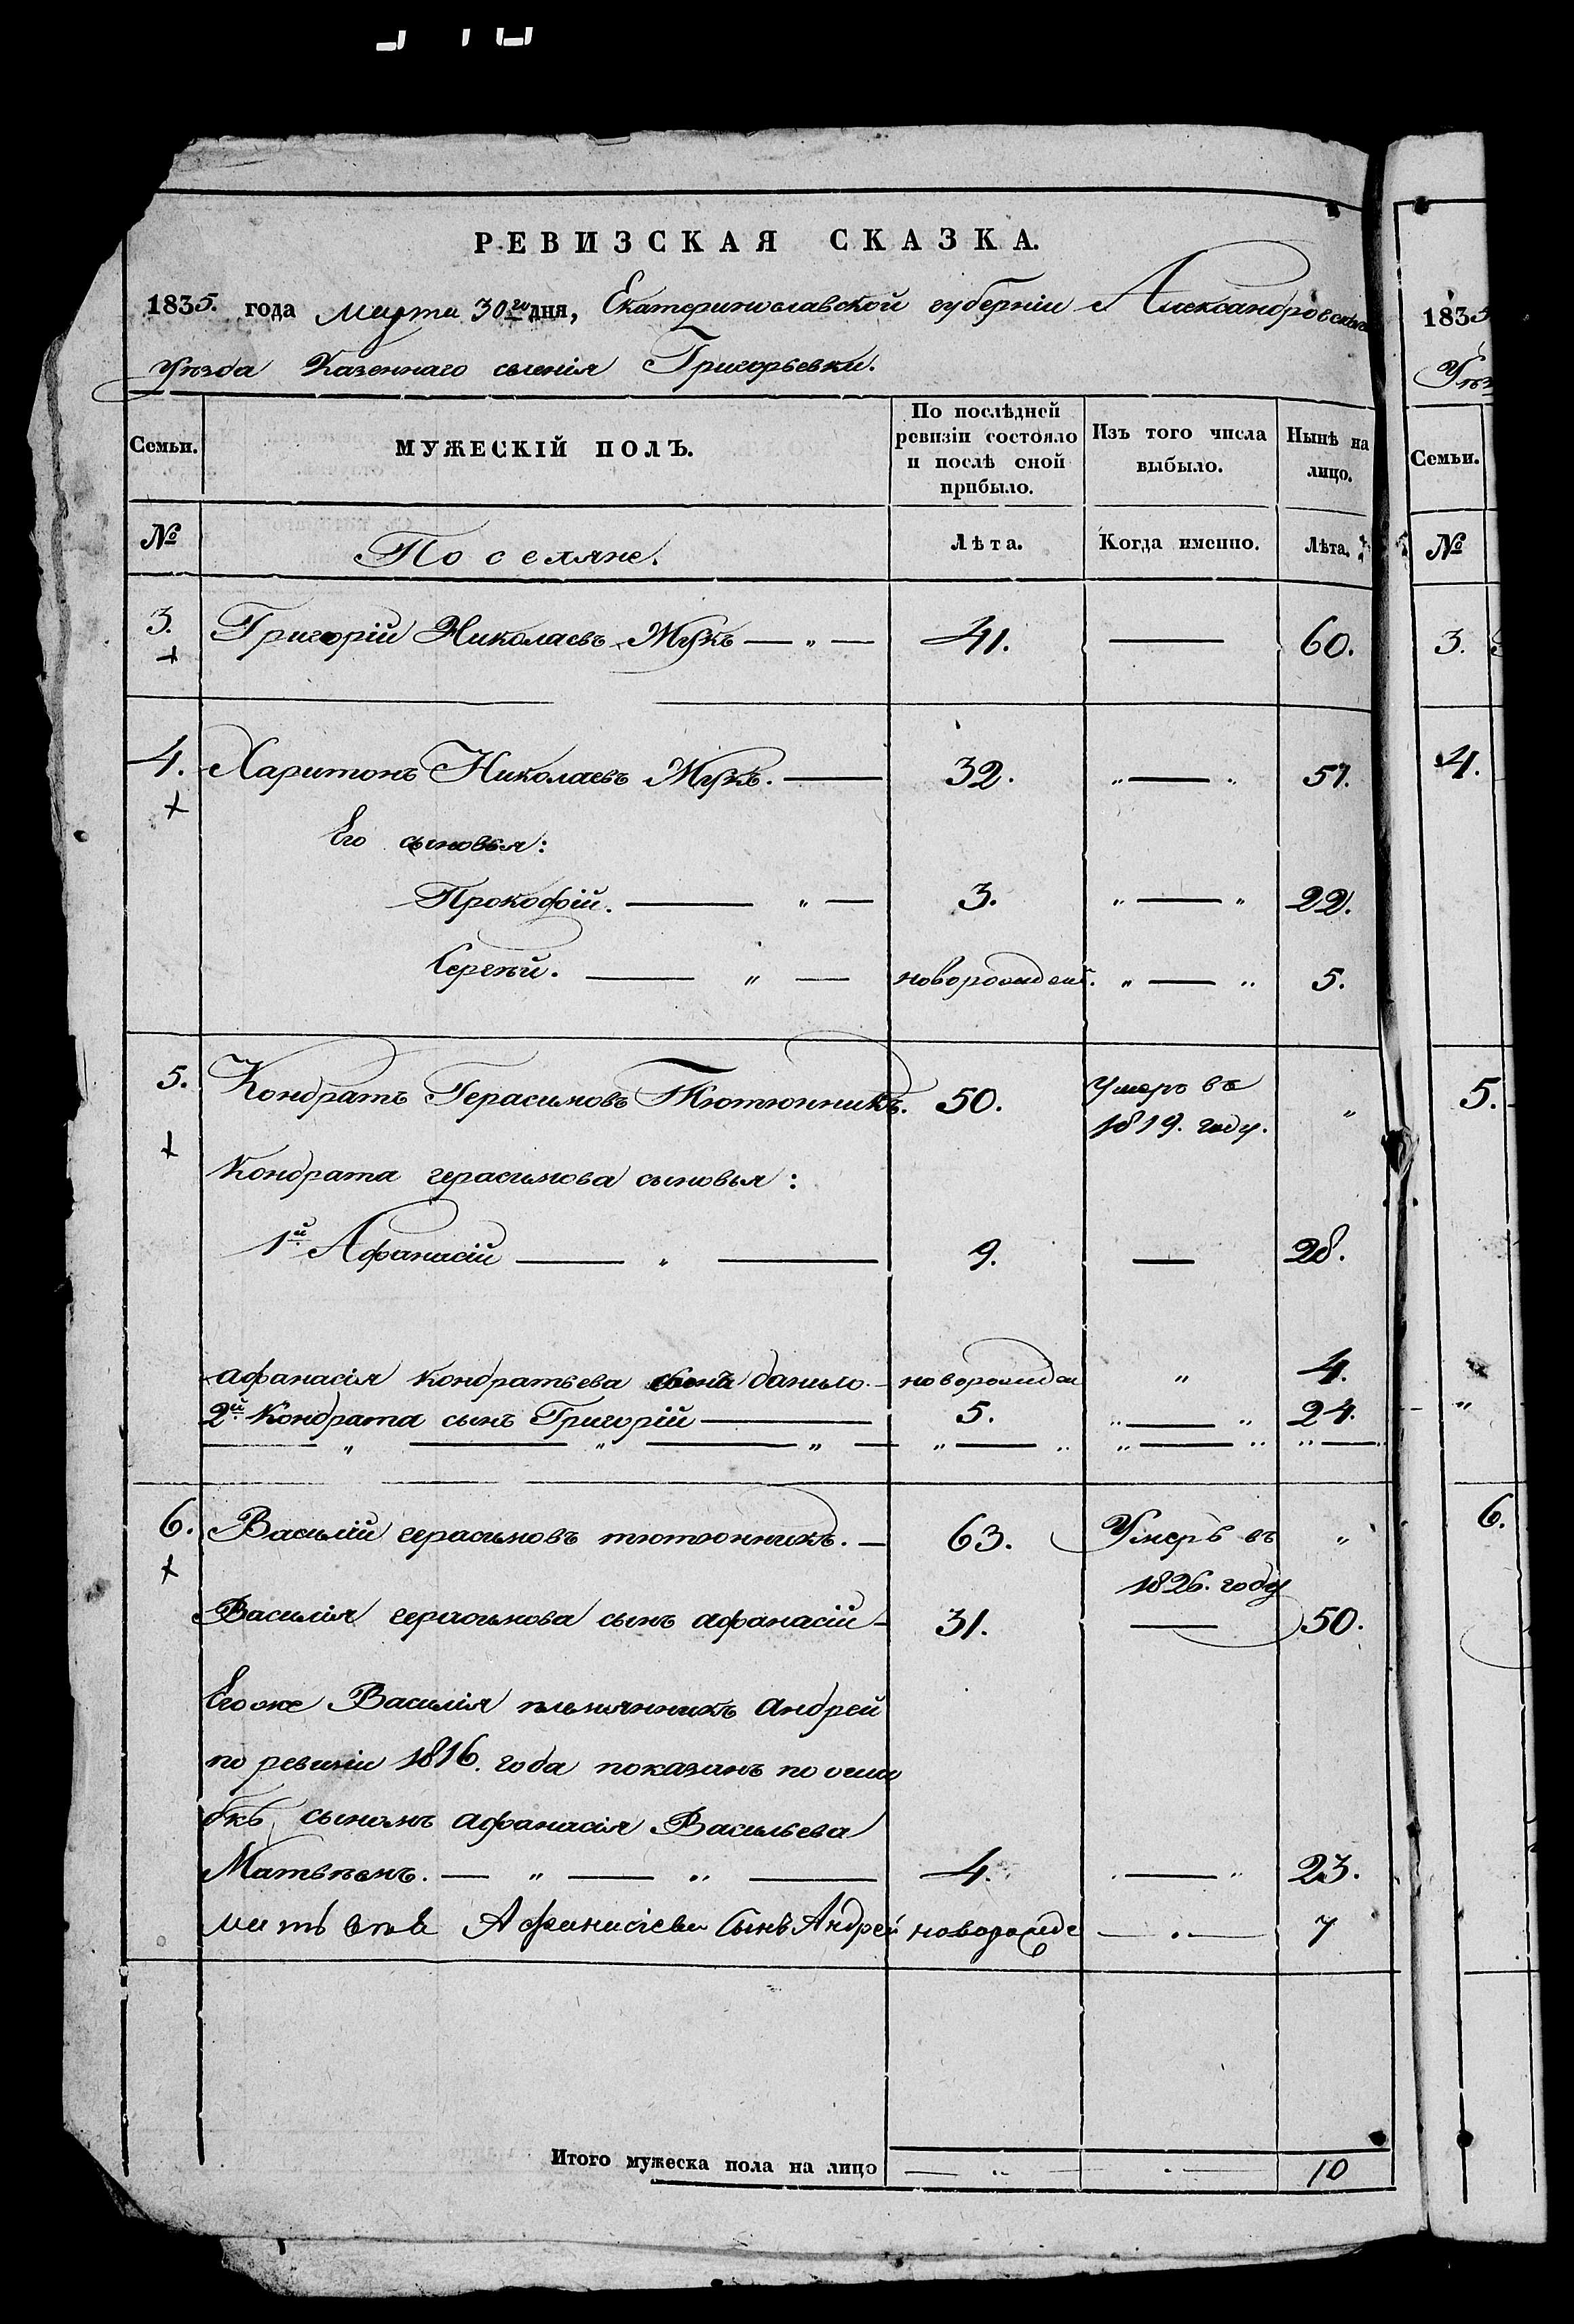 РЕВИЗСКАЯ СКАЗКА.
1835. года Марта 30го дня, Екатеринославской губерніи Александровскаго
Уѣзда Казеннаго селенія Григорьевки.
Семьи.
МУЖЕСКІЙ ПОЛЪ.
По послѣдней
ревизіи состояло
и послѣ оной
прибыло.
Изъ того числа
выбыло.
Нынѣ на
лицо.
№
Поселяне.
Лѣта.
Когда именно.
Лѣта.
3. Григорій Николаевъ Жукъ — " — 41. — 60.
4. Харитонъ Николаевъ Жукъ. — 32. " — " 51.
Его сыновья:
Прокофій. — " — 3. " — " 22.
Сергѣй. — " — новорожден. " — " 5.
5. Кондратъ Герасимовъ Тютюнникъ. 50. Умеръ въ "
1819. году.
Кондрата герасимова сыновья:
1й Афанасій — " — 9. — 28.
афанасія кондратьева сынъ данило. — новорожден " 4.
2й Кондрата сынъ Григорій — 5. " — " 24.
6. Василій герасимовъ тютюнникъ. — 63. Умеръ въ "
1826. году
Василія герасимова сынъ афанасій — 31. — 50.
Его же Василія племянникъ андрей
по ревизіи 1816. года показанъ по оши
бкѣ сыномъ афанасія Васильева
Матвѣемъ. — " — " — 4. — " 23.
Матвѣя Афанасіева Сынъ Андрей новорожде — " — 7
Итого мужеска пола на лицо — " — " — 10
1835
Уѣз
Семьи.
№
3.
4.
5.
"
6.